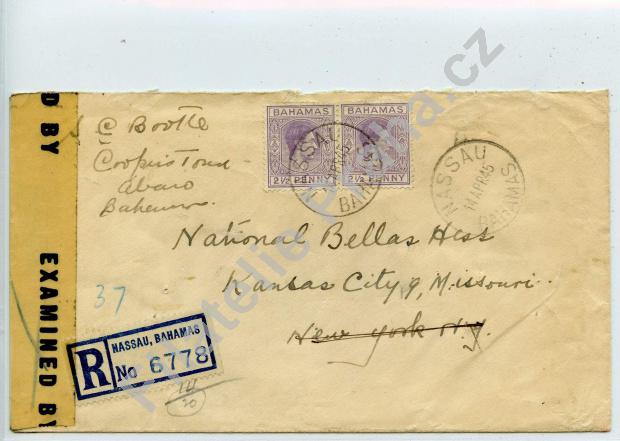 D BY
EXAMINED BY
C Bootle
Coopers Town
Abaco
Bahamas
BAHAMAS
2½ PENNY
BAHAMAS
2½ PENNY
NASSAU
APR 45
BAHAMAS
NASSAU
14 APR 45
BAHAMAS
National Bellas Hess
Kansas City 9, Missouri
New York N.Y.
37
R
NASSAU, BAHAMAS
No 6778
20
filatelie-praha.cz